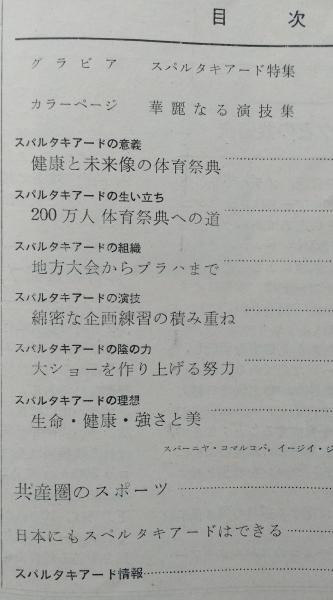 目次
グラビア スパルタキアード特集
カラーページ 華麗なる演技集
スパルタキアードの意義
健康と未来像の体育祭典
スパルタキアードの生い立ち
200万人 体育祭典への道
スパルタキアードの組織
地方大会からプラハまで
スパルタキアードの演技
綿密な企画練習の積み重ね
スパルタキアードの陰の力
大ショーを作り上げる努力
スパルタキアードの理想
生命・健康・強さと美
スパーニヤ・コマルコバ，イージイ・ジ
共産圏のスポーツ
日本にもスペルタキアードはできる
スパルタキアード情報